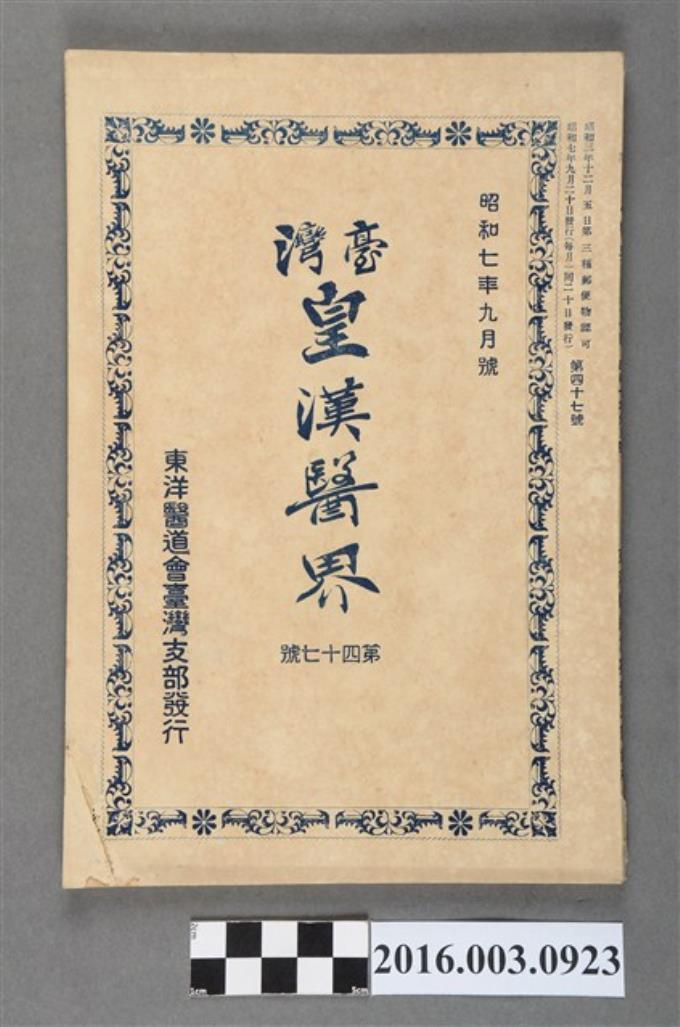 昭和三年十二月五日第三種郵便物認可
昭和七年九月二十日發行(每月一回二十日發行)
第四十七號
昭和七年九月號
臺灣
皇漢醫界
第四十七號
東洋醫道會臺灣支部發行
5cm
2016.003.0923